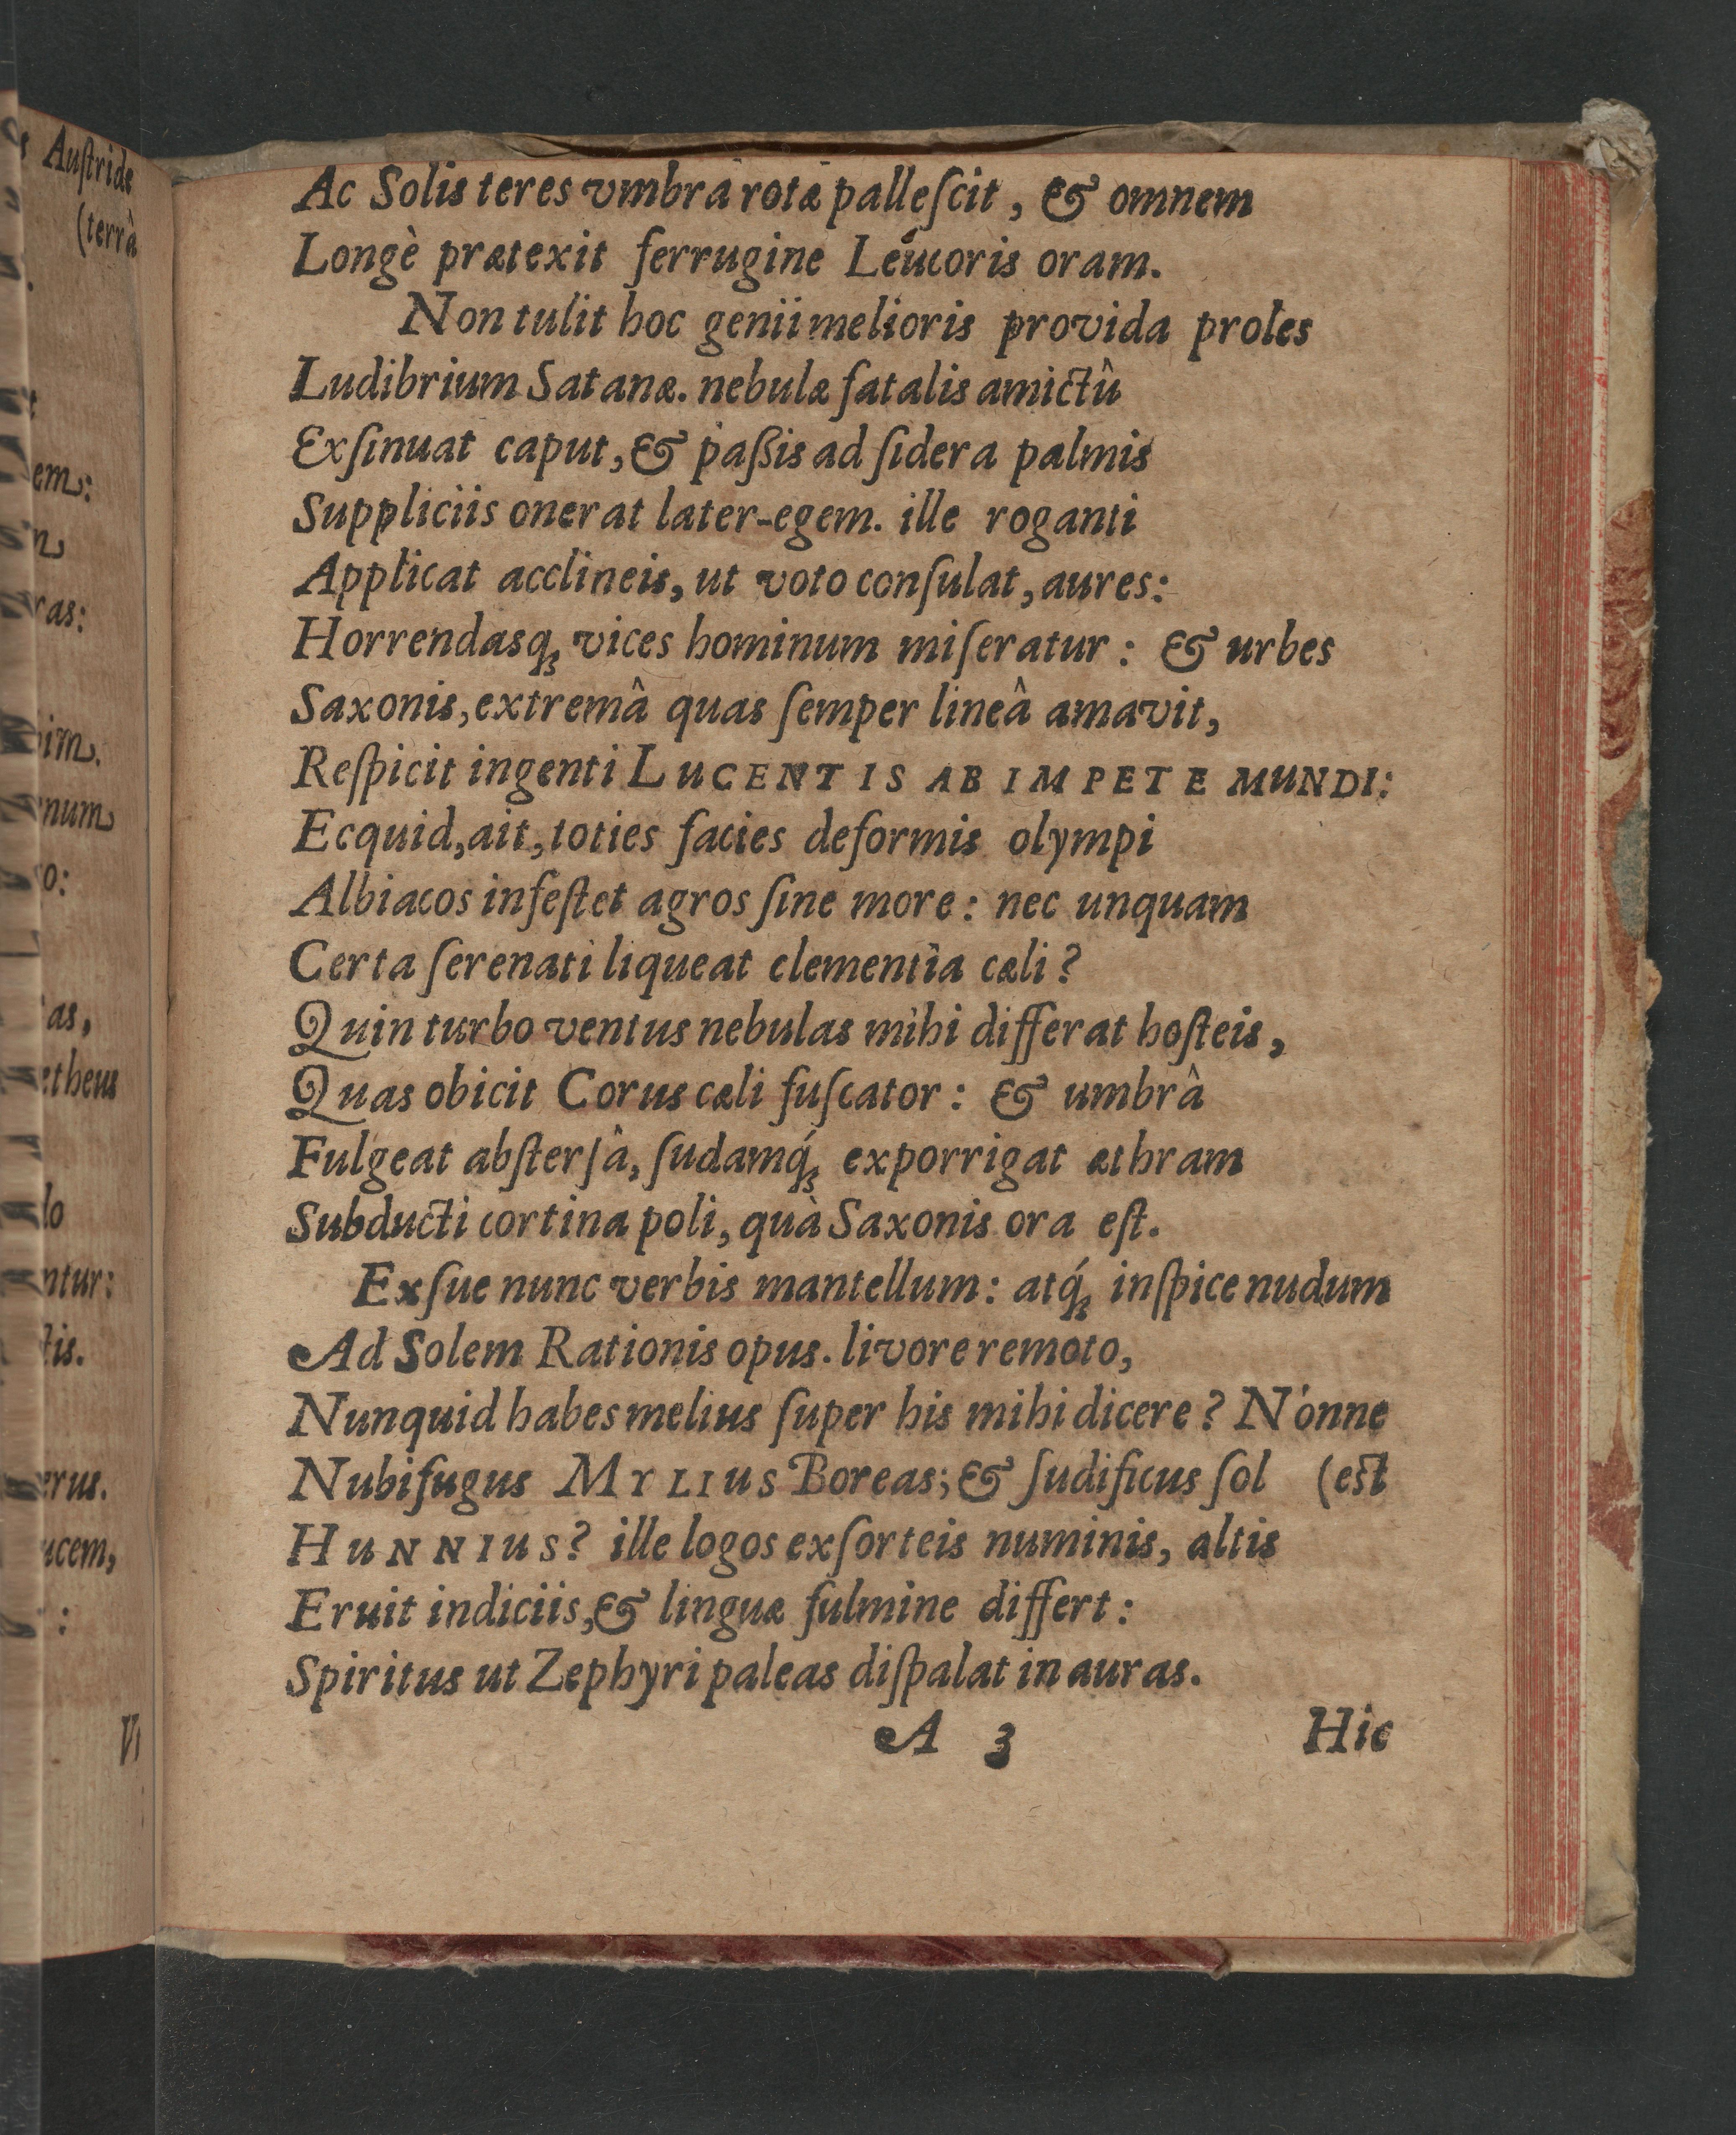 Ac Solis teres vmbrâ rotæ palleſcit, & omnem
Longè prætexit ferrugine Leúcoris oram.
Non tulit hoc genii melioris provida proles
Ludibrium Satanæ. nebulæ fatalis amictû
Exſinuat caput, & paßis ad ſidera palmis
Suppliciis onerat later-egem. ille roganti
Applicat acclineis, ut voto conſulat, aures:
Horrendasq́ꝫ vices hominum miſeratur: & urbes
Saxonis, extremâ quas ſemper lineâ amavit,
Reſpicit ingenti LUCENTIS AB IMPETE MUNDI:
Ecquid, ait, toties facies deformis olympi
Albiacos infeſtet agros ſine more: nec unquam
Certa ſerenati liqueat clementia cæli?
Quin turbo ventus nebulas mihi differat hoſteis,
Quas obicit Corus cæli fuſcator: & umbrâ
Fulgeat abſterſâ, ſudamq́ꝫ exporrigat æthram
Subducti cortina poli, quà Saxonis ora eſt.
Exſue nunc verbis mantellum: atq́ꝫ inſpice nudum
Ad Solem Rationis opus. livore remoto,
Nunquid habes melius ſuper his mihi dicere? Nónne
Nubifugus MYLIUS Boreas; & ſudificus ſol (eſt
HUNNIUS? ille logos exſorteis numinis, altis
Eruit indiciis, & linguæ fulmine differt:
Spiritus ut Zephyri paleas diſpalat in auras.
A 3 Hic